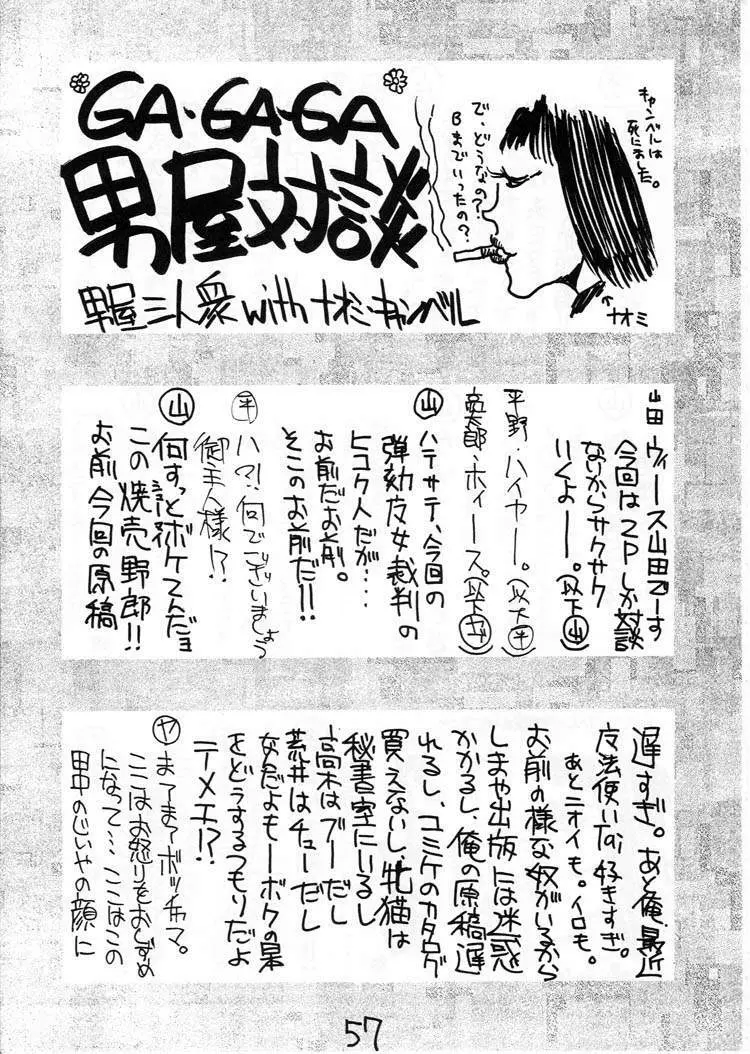 GA・GA・GA
男屋対談
男屋三人衆withナオミ・キャンベル
キャンベルは
死にました。
で、どうなの？
Bまでいったの？
ナオミ
山田 ヴィース山田でーす
今回は2Pしか対談
ないからサクサク
いくよーー。(以下山)
平野・ハイヤー。(以下平)
・ホィース。(以下ヤ)
山 ハテサテ、今回の
弾劾友女裁判の
ヒコク人だが‥‥
お前だお前。
そこのお前だ!!
平 ハ?!何でございましょう
御主人様!?
山 何すっとボケてんだョ
この焼売野郎!!
お前、今回の原稿
遅すぎ。あと俺、最近
友法使いTai好きすぎ。
あとニオイも。イロも。
お前の様な奴がいるから
しまや出版には迷惑
かかるし、俺の原稿遅
れるし、コミケのカタログ
買えないし、牝猫は
秘書室にいるし
高木はブーだし
荒井はチューだし
なんだよもーボクの巣
をどうするつもりだよ
テメエ!?
ヤ まてまてボッチャマ。
ここはお怒りをおしずめ
になって…ここはこの
田中のじいやの顔に
57